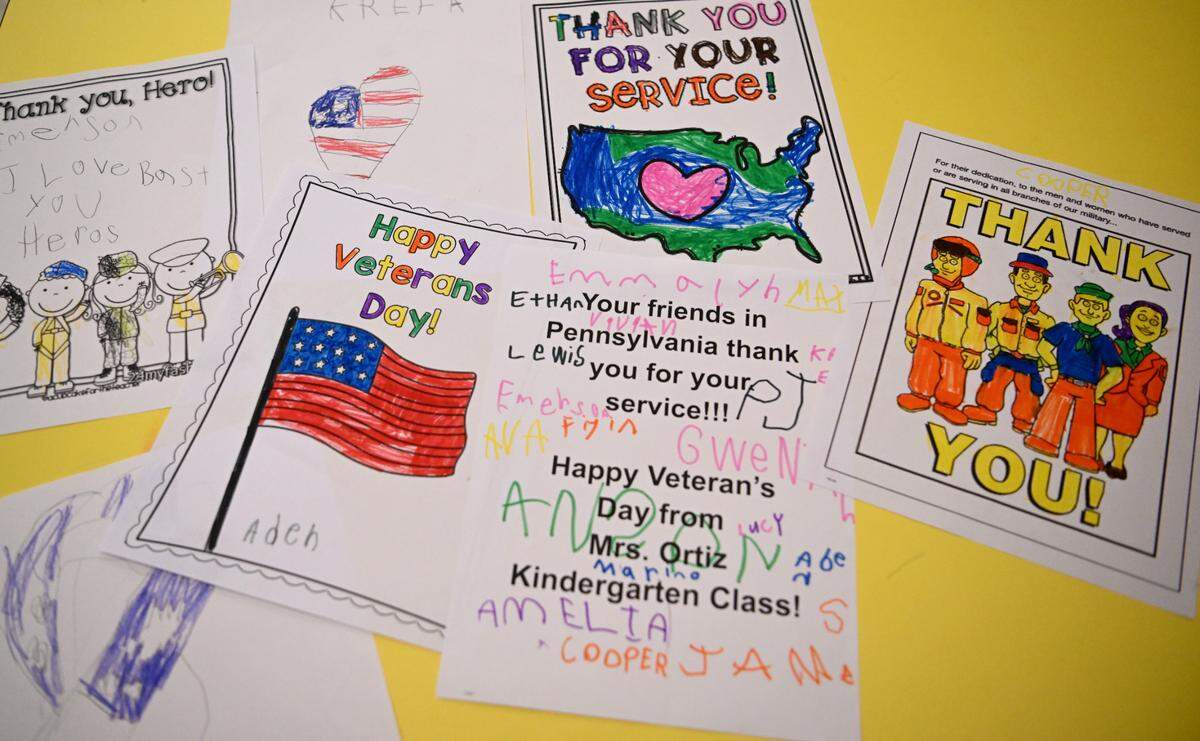 KREFA
Thank you, Hero!
Emerson
I Love Bast
YOU
Heros
THANK YOU
FOR YOUR
SERVICE!
For their dedication, to the men and women who have served
or are serving in all branches of our military...
COOPER
THANK
YOU!
Happy
Veterans
Day!
Aden
Emmalyh MAX
ETHAN Your friends in
Vivian
Pennsylvania thank
Lewis you for your
service!!! PJ
Emerson
AVA Fyin
GWEN
Happy Veteran's
Day from
ANSON LUCY
Mrs. Ortiz
Abe
Marino
Kindergarten Class!
AMELIA
COOPER JAMe